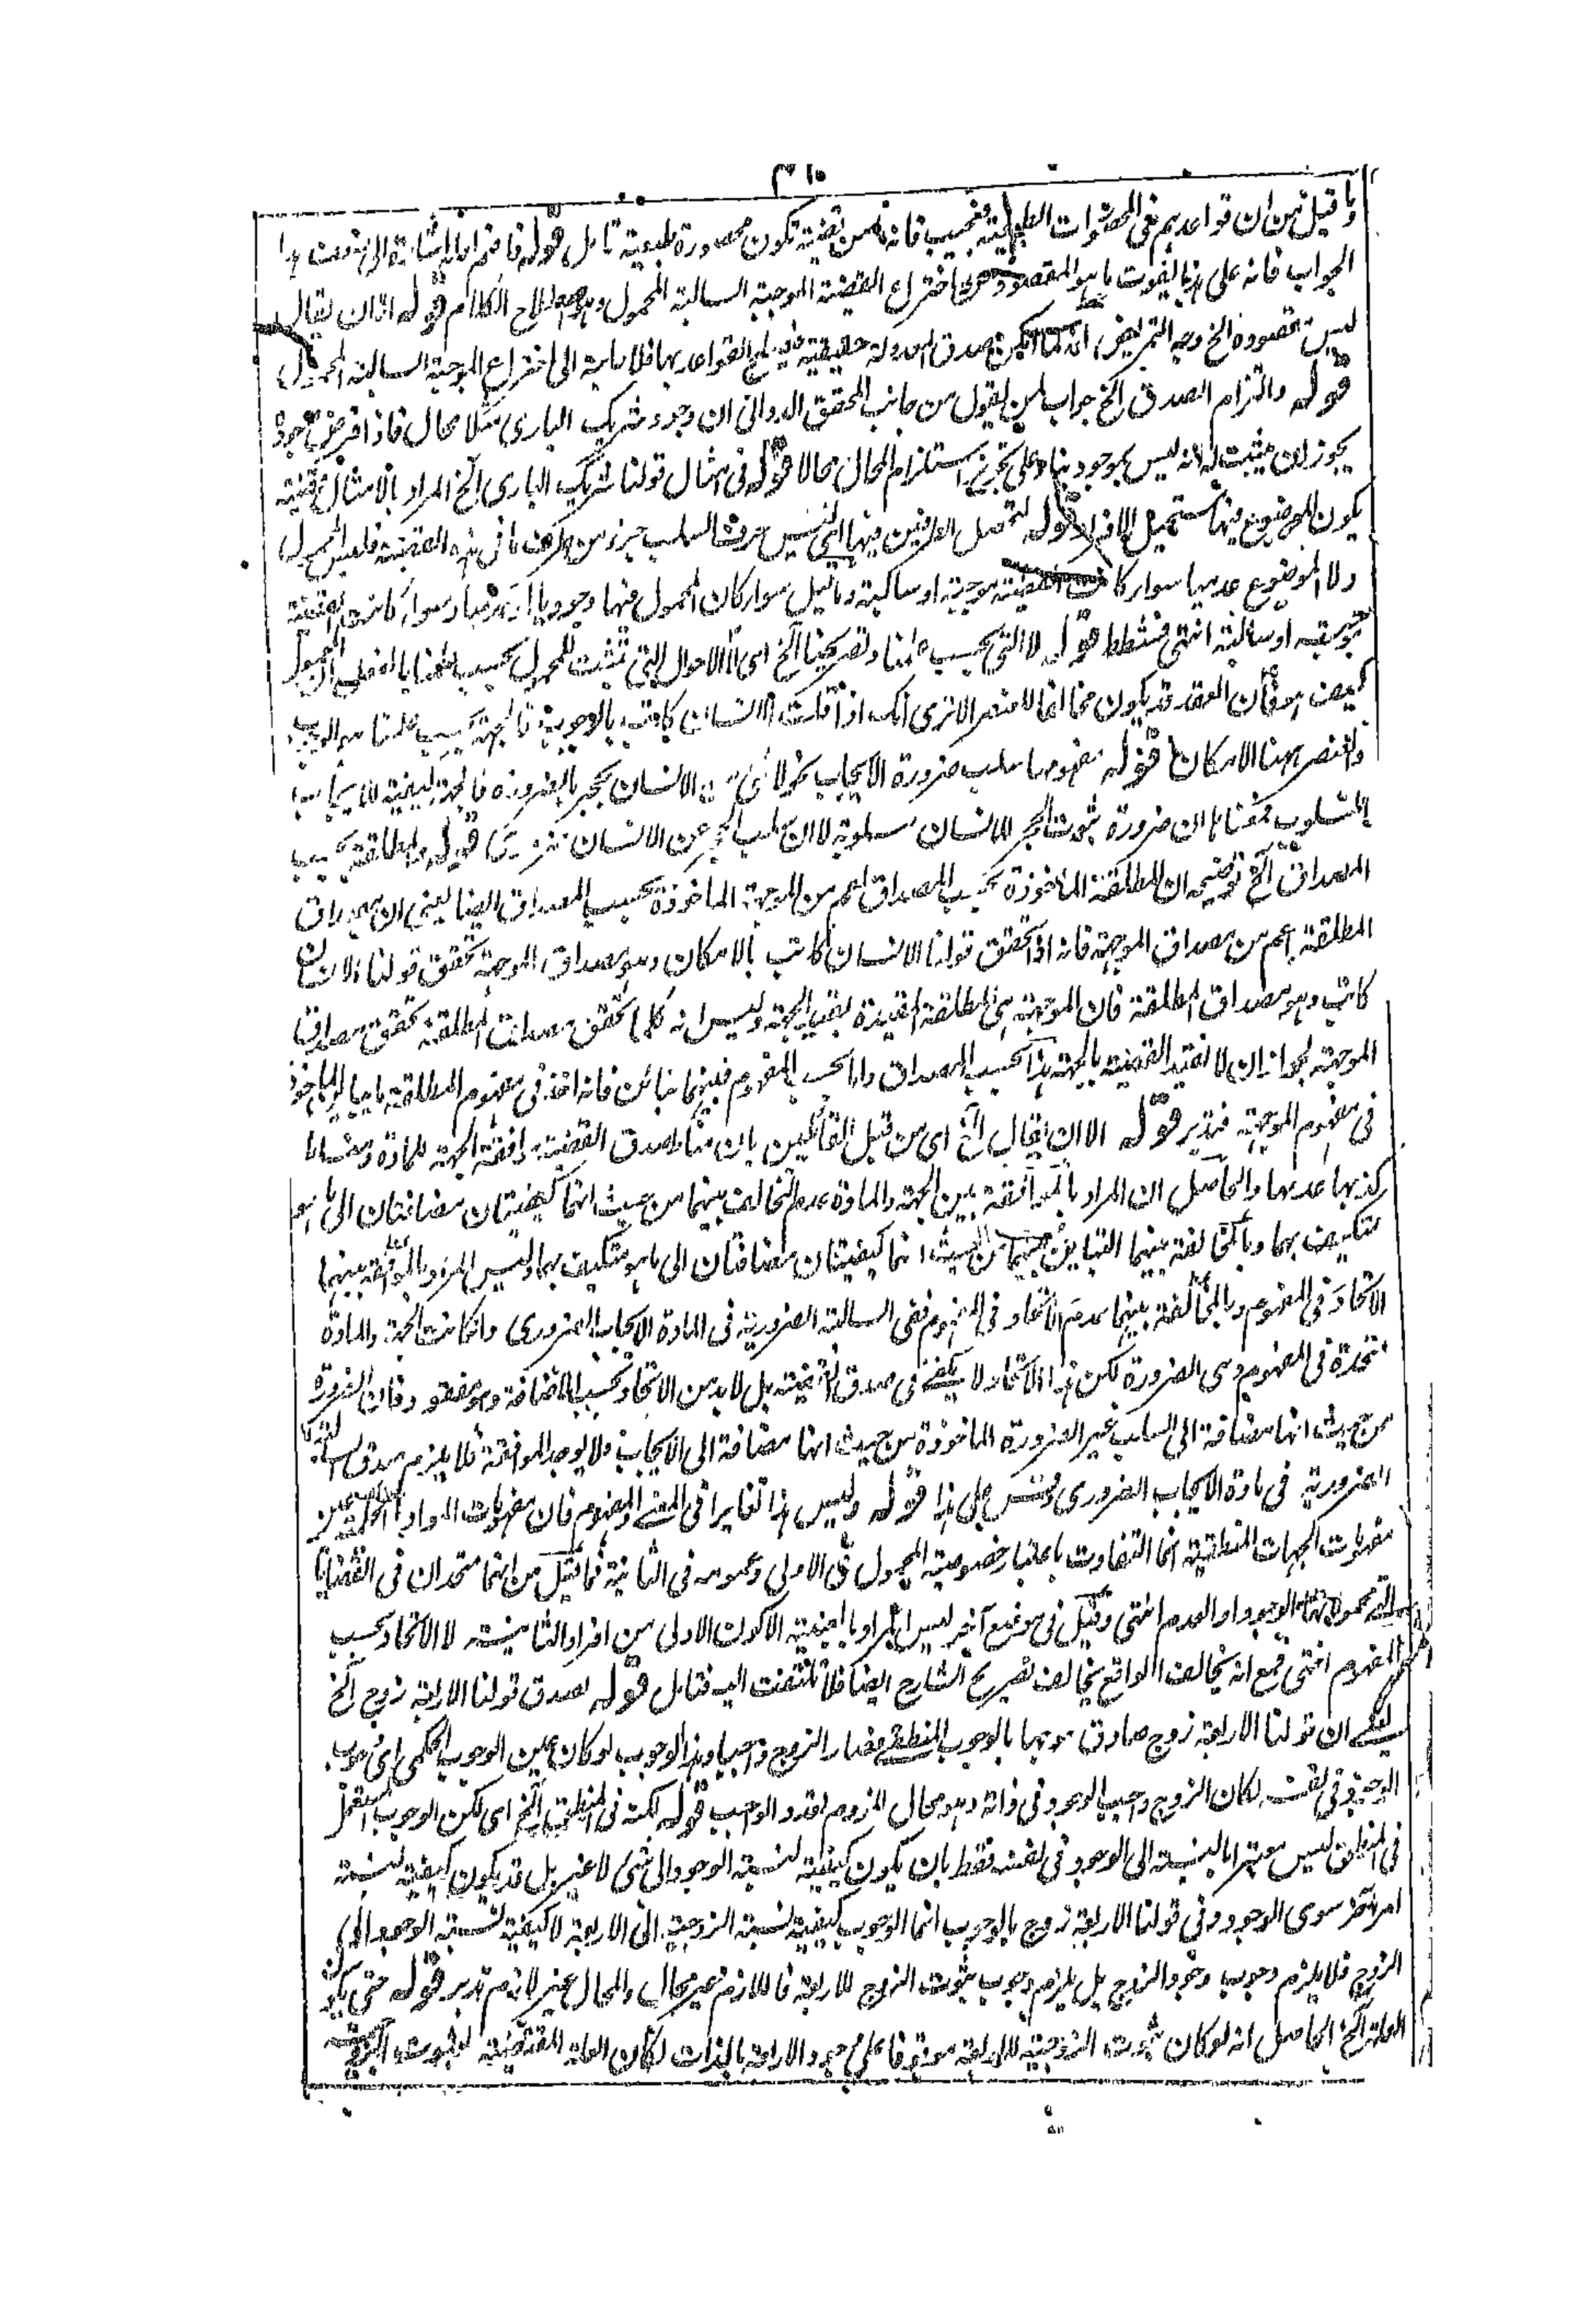 وما قيل من ان قواعدهم فى المحصورات الطبيعية فعجيب فانه من قضية تكون محصورة طبعية تامل قوله فافهم اشارة الى ضعف هذا
الجواب فانه على هذا يفوت ما هو المقصود من اختراع القضية الموجبة السالبة المحمول وهو اصلاح الكلام قوله الا ان يقال
ليس مقصوده الخ وجه التمريض انه لما لم يكن صدق المعدولة حقيقية القواعد بها فلا حاجة الى اختراع الموجبة السالبة المحمول
قوله والتزام الصدق الخ جواب لمن يقول من جانب المحقق الدوانى ان وجود شريك البارى مثلا محال فاذا فرض وجوده
يجوز ان يثبت له انه ليس بموجود بناء على تجويز استلزام المحال محالا قوله فى امثال قولنا شريك البارى الخ المراد بالامثال قضية
يكون الموضوع فيها مستحيل الافراد قوله لتحصل الطرفين فيها اى ليس حرف السلب جزء من الطرف ما فى هذه القضية فليس المحمول
ولا الموضوع عدميا سواء كانت القضية موجبة او سالبة وما قيل سواء كان المحمول فيها وجوديا او عدميا وسواء كانت القضية
موجبة او سالبة انتهى فشطط قوله لا التى بحسب وتصريحنا الخ اى لا الاحوال التى تثبت للمحمول بحسب
كيف هو فان العقد قد يكون مخالفا للعنصر الا ترى انك اذا قلت الانسان كاتب بالوجوب فالجهة بحسب هو الوجوب
والعنصر ههنا الامكان قوله مفهومها سلب ضرورة الايجاب نحو لا شئ من الانسان بحجر بالضرورة فالجهة
السلوب فمعناها ان ضرورة ثبوت الحجر للانسان مسلوبة لا ان سلب الحجر عن الانسان ضرورى قوله والمطلقة بحسب
المصداق الخ توضيحه ان المطلقة الماخوذة بحسب المصداق اعم من الموجهة الماخوذة بحسب المصداق ايضا يعنى ان مصداق
المطلقة اعم من مصداق الموجهة فانه اذا تحقق قولنا الانسان كاتب بالامكان وهو مصداق الموجهة تحقق قولنا الانسان
كاتب وهو مصداق المطلقة فان الموجهة هى المطلقة المقيدة بقيد الجهة وليس انه كلما تحقق مصداق المطلقة تحقق مصداق
الموجهة لجواز ان لا تقيد القضية بالجهة هذا بحسب المصداق واما بحسب المفهوم فبينهما تباين فانه اخذ فى مفهوم المطلقة ما يباين الماخوذ
فى مفهوم الموجهة فتدبر قوله الا ان يقال الخ اى من قبل القائلين بان مناط صدق القضية موافقة الجهة للمادة ومناط
كذبها عدمها والحاصل ان المراد بالموافقة بين الجهة والمادة عدم التخالف بينهما من حيث انهما كيفيتان مضافتان الى ما هو
متكيف بهما وبالمخالفة بينهما التباين بينهما من حيث انهما كيفيتان مضافتان الى ما هو متكيف بهما وليس المراد بالموافقة بينهما
الاتحاد فى المفهوم وبالمخالفة بينهما عدم الاتحاد فى المفهوم ففى السالبة الضرورية فى المادة الايجاب الضرورى وان كانت الجهة والمادة
متحدة فى المفهوم وهى الضرورة لكن هذا الاتحاد لا يكفى فى صدق القضية بل لا بد من الاتحاد بحسب الاضافة وهو مفقود فان الضرورة
من حيث انها مضافة الى السلب غير الضرورة الماخوذة من حيث انها مضافة الى الايجاب فلا يوجد الموافقة فلا يلزم صدق السالبة
الضرورية فى مادة الايجاب الضرورى وقس على هذا قوله وليس هذا تغايرا فى المعنى والمفهوم فان مفهومات المواد الحكمية عين
مفهومات الجهات المنطقية انما التفاوت باعتبار خصوصية المحمول فى الاولى وعمومه فى الثانية فما قيل من انهما متحدان فى القضايا
التى محمولاتها الوجود او العدم انتهى وقيل فى موضع آخر ليس المراد بالعينية الا كون الاولى من افراد الثانية لا الاتحاد بحسب
المفهوم انتهى فمع انه يخالف الواقع يخالف تصريح الشارح ايضا فلا تلتفت اليه فتامل قوله لصدق قولنا الاربعة زوج الخ
يعنى ان قولنا الاربعة زوج صادق موجها بالوجوب المنطقى فصار الزوج واجبا وهذا الوجوب لو كان عين الوجوب الحكمى اى وجوب
الوجود فى نفسه لكان الزوج واجب الوجود فى ذاته وهو محال للزوم تعدد الواجب قوله لكنه فى المنطق الخ اى لكن الوجوب المستعمل
فى المنطق ليس معتبرا بالنسبة الى الوجود فى نفسه فقط بان يكون كيفية لنسبة الوجود الى شئ لا غير بل قد يكون كيفية لنسبة
امر آخر سوى الوجود وفى قولنا الاربعة زوج بالوجوب انما الوجوب كيفية لنسبة الزوجية الى الاربعة لا كيفية لنسبة الوجود الى
الزوج فلا يلزم وجوب وجود الزوج بل يلزم وجوب ثبوت الزوج للاربعة فاللازم غير محال والمحال غير لازم تدبر قوله حتى يكون
العلة الخ الحاصل انه لو كان ثبوت الزوجية للاربعة موقوفا على وجود الاربعة بالذات لكان العلة المقتضية لثبوت الزوجية